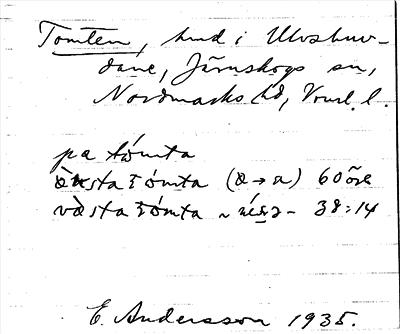 Tomten, hmd i Ulvshuv-
dane, Järnskogs sn,
Nordmarks hd, Vrml. l.
pa tómta
østa tómta (ə → a) 60 öre
vàsta tómta ~ 38:14
E. Andersson 1935.